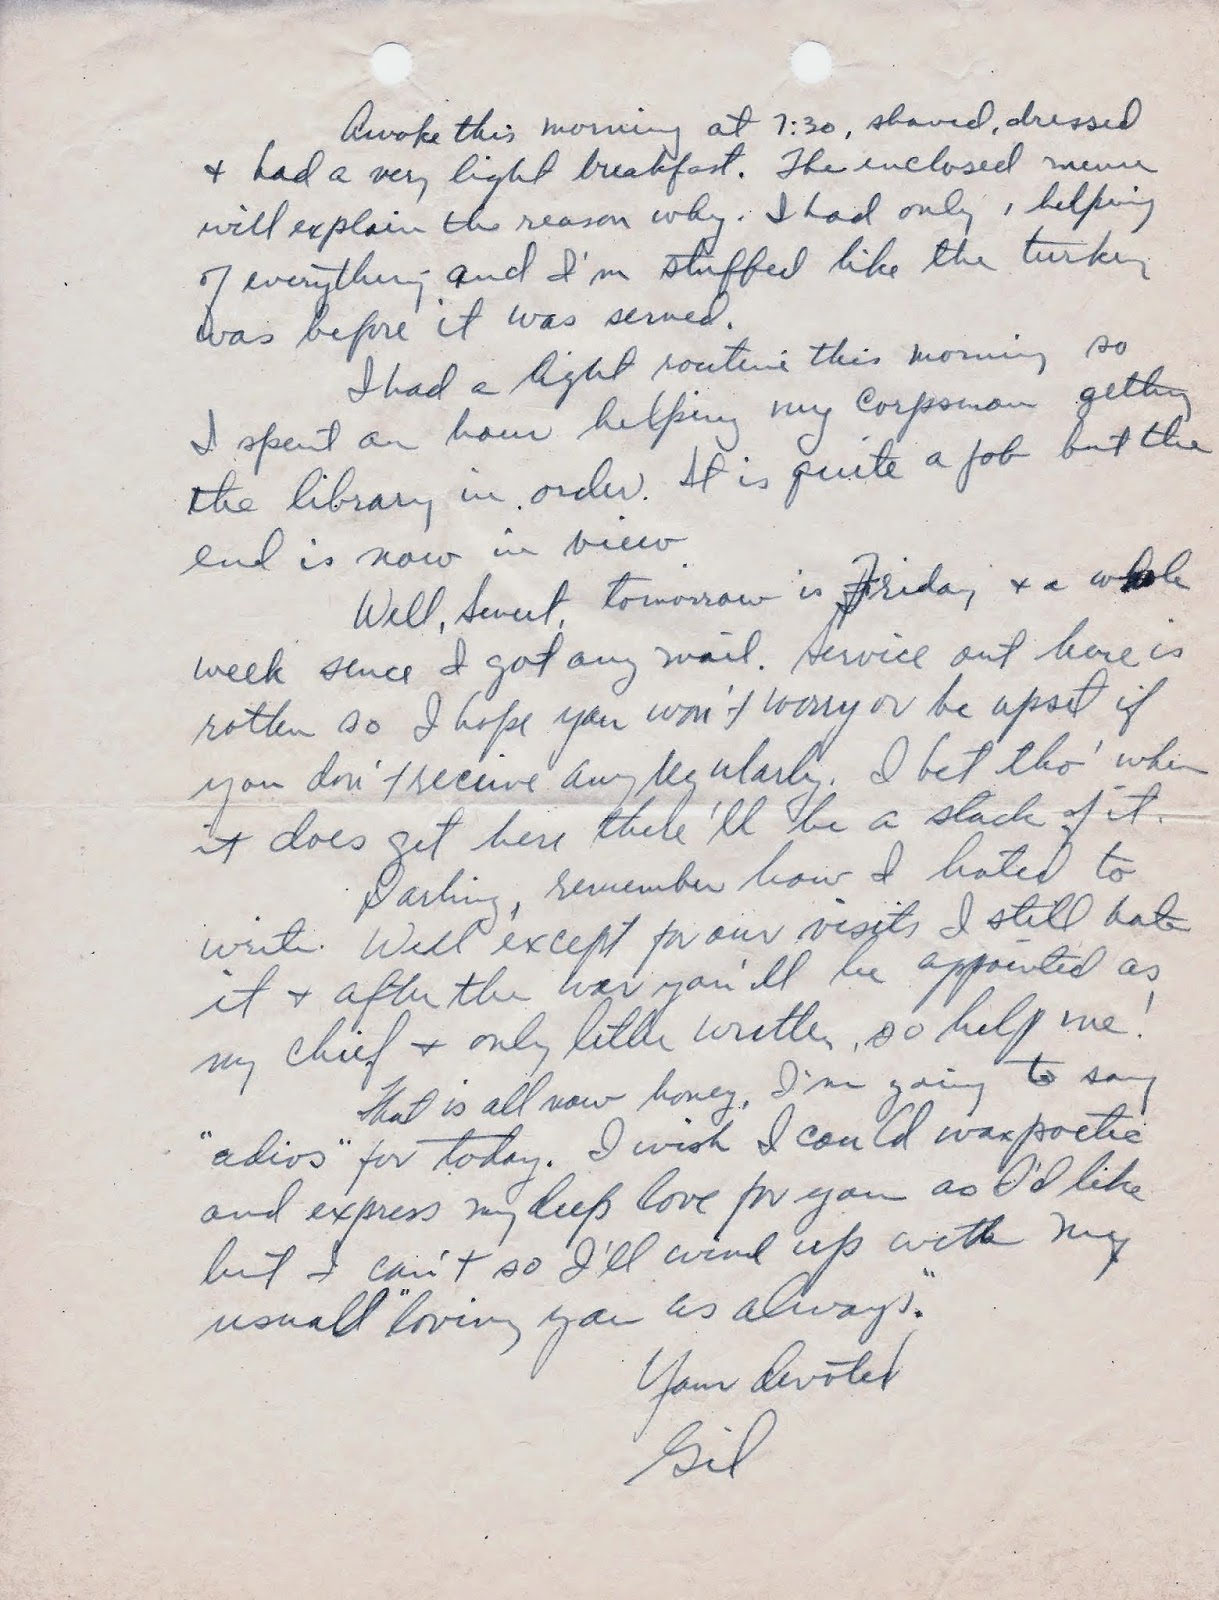 Awoke this morning at 7:30, shaved, dressed
+ had a very light breakfast. The enclosed menu
will explain the reason why. I had only 1 helping
of everything and I'm stuffed like the turkey
was before it was served.
I had a light routine this morning so
I spent an hour helping my corpsman getting
the library in order. It is quite a job but the
end is now in view
Well, Sweet, tomorrow is Friday + a whole
week since I got any mail. Service out here is
rotten so I hope you won't worry or be upset if
you don't receive any regularly. I bet tho' when
it does get here there'll be a stack of it.
Darling, remember how I hated to
write. Well except for our visits I still hate
it + after the war you'll be appointed as
my chief + only letter writer, so help me!
That is all now honey, I'm going to say
"adios" for today. I wish I could wax poetic
and express my deep love for you as I'd like
but I can't so I'll wind up with my
usuall "loving you as always".
Your devoted
Gil